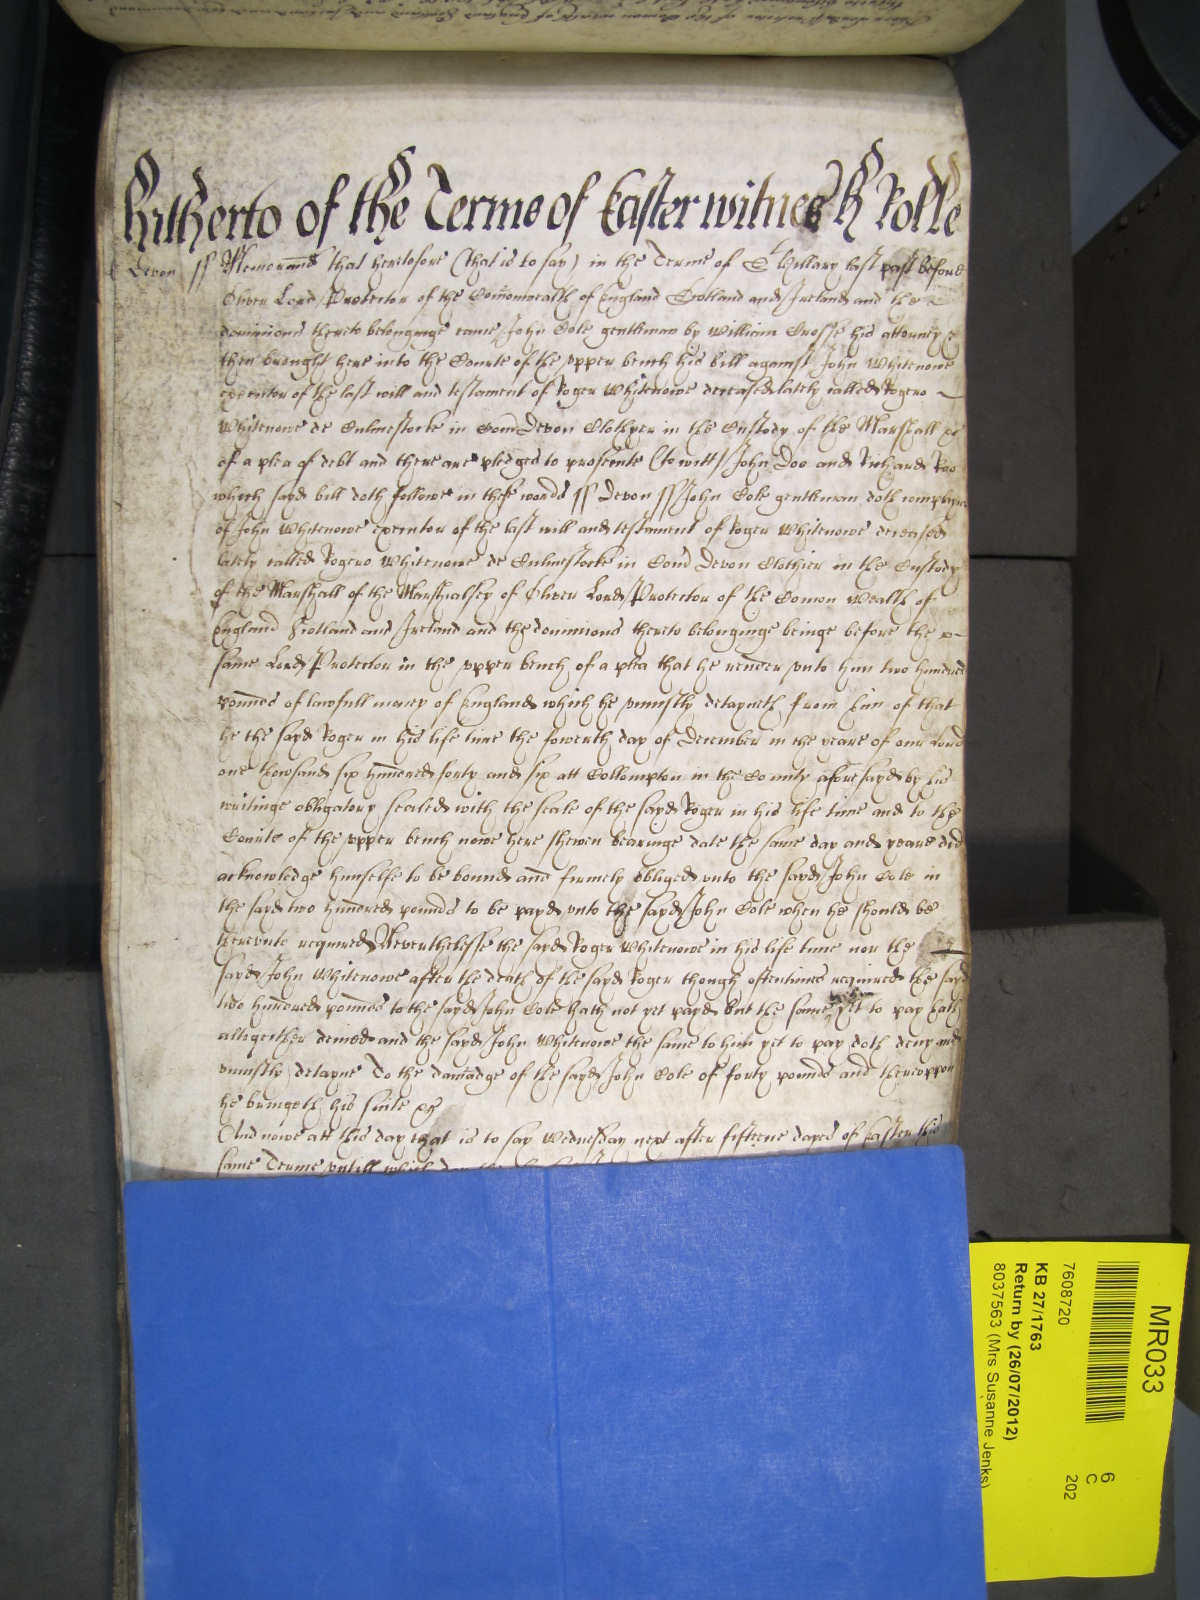 hitherto of the Terme of Easter witnes H Rolle
Devon ss Memorand that heretofore (that is to say) in the Terme of St hillary last past before
Oliver Lord Protector of the Comonwealth of England Scotland and Ireland and the
dominions thereto belonginge came John Cole gentleman by William Crosse his attorney
then brought here into the Courte of the upper bench his bill against John Whitenowe
executor of the last will and testament of Roger Whitenowe deceased lately called Rogero
Whitenowe de Culmestocke in Com Devon Clothyer in the Custody of the Marshall &c
of a plea of debt and there are pledges to prosecute (to witt) John Doo and Richard Roo
which sayd bill doth followe in these words ss Devon ss John Cole gentleman doth complayne
of John Whitenowe executor of the last will and testament of Roger Whitenowe deceased
lately called Rogero Whitenowe de Culmestocke in Com Devon Clothier in the Custody
of the Marshall of the Marshialsey of Oliver Lord Protector of the Comon Wealth of
England Scotland and Ireland and the dominions thereto belonginge beinge before the
same Lord Protector in the upper bench of a plea that he render unto him two hundred
pounds of lawfull money of England which he uniustly detayneth from him of that
he the sayd Roger in his life time the fowerth day of December in the yeare of our Lord
one thowsand six hundred forty and six att Collompton in the County aforesayd by his
writinge obligatory sealed with the seale of the sayd Roger in his life time and to the
Courte of the upper bench nowe here shewen bearinge date the same day and yeare did
acknowledge himselfe to be bound and firmely obliged unto the sayd John Cole in
the sayd two hundred pounds to be payd unto the sayd John Cole when he should be
thereunto required Neverthelesse the sayd Roger Whitenowe in his life time nor the
sayd John Whitenowe after the death of the sayd Roger though oftentimes required the sayd
two hundred pounds to the sayd John Cole hath not yet payd but the same yet to pay hath
altogether denied and the sayd John Whitenowe the same to him yet to pay doth deny and
uniustly detayne To the damadge of the sayd John Cole of forty pounds and thereuppon
he bringeth his suite &c
And nowe att this day that is to say Wednesday next after fifteene dayes of Easter this
same Terme untill which day
MR033
6
C
202
7608720
KB 27/1763
Return by (26/07/2012)
8037563 (Mrs Susanne Jenks)